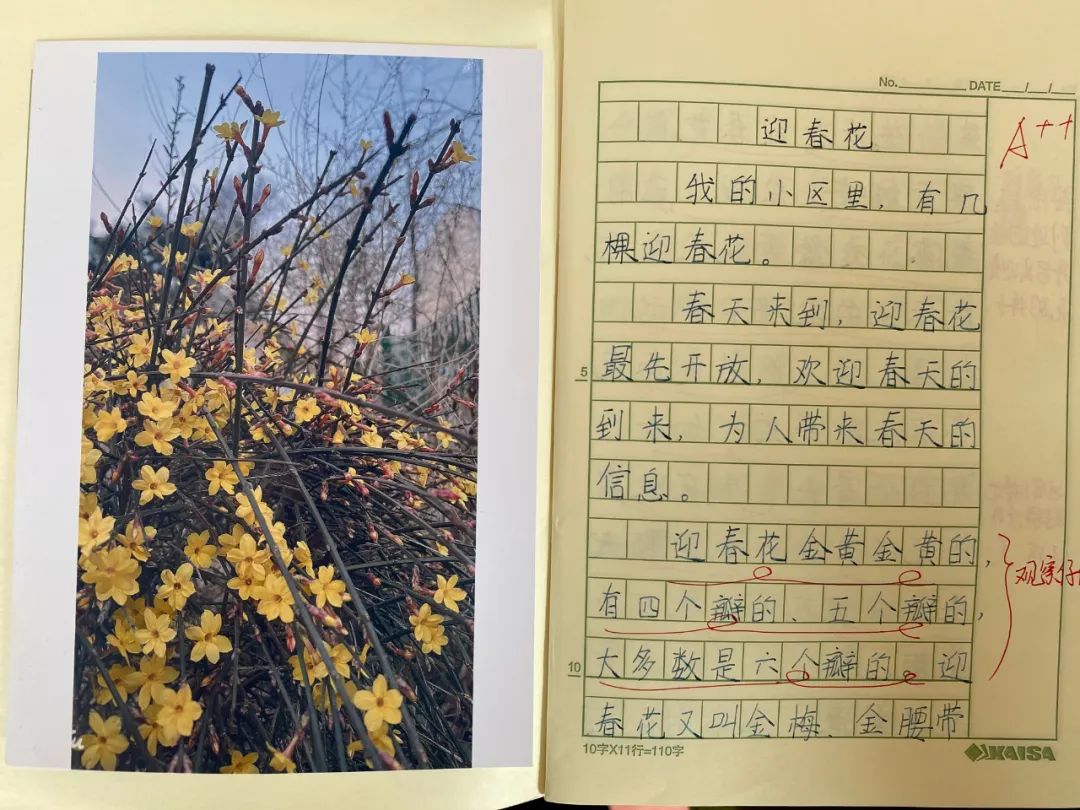 No. DATE / /
迎春花
A++
我的小区里，有几
棵迎春花。
春天来到，迎春花
5
最先开放，欢迎春天的
到来，为人带来春天的
信息。
迎春花金黄金黄的，
有四个瓣的、五个瓣的，
观察仔
10
大多数是六个瓣的。迎
春花又叫金梅、金腰带
10字X11行=110字
KAISA